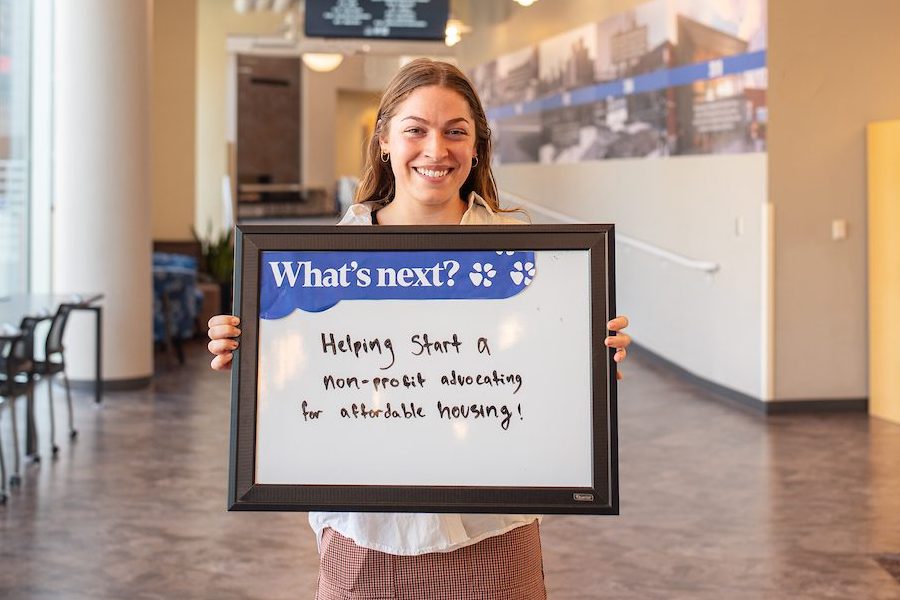 What's next?
Helping Start a
non-profit advocating
for affordable housing!